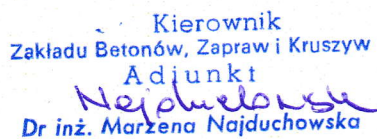 Kierownik
Zakładu Betonów, Zapraw i Kruszyw
Adiunkt
Najduchowska
Dr inż. Marzena Najduchowska